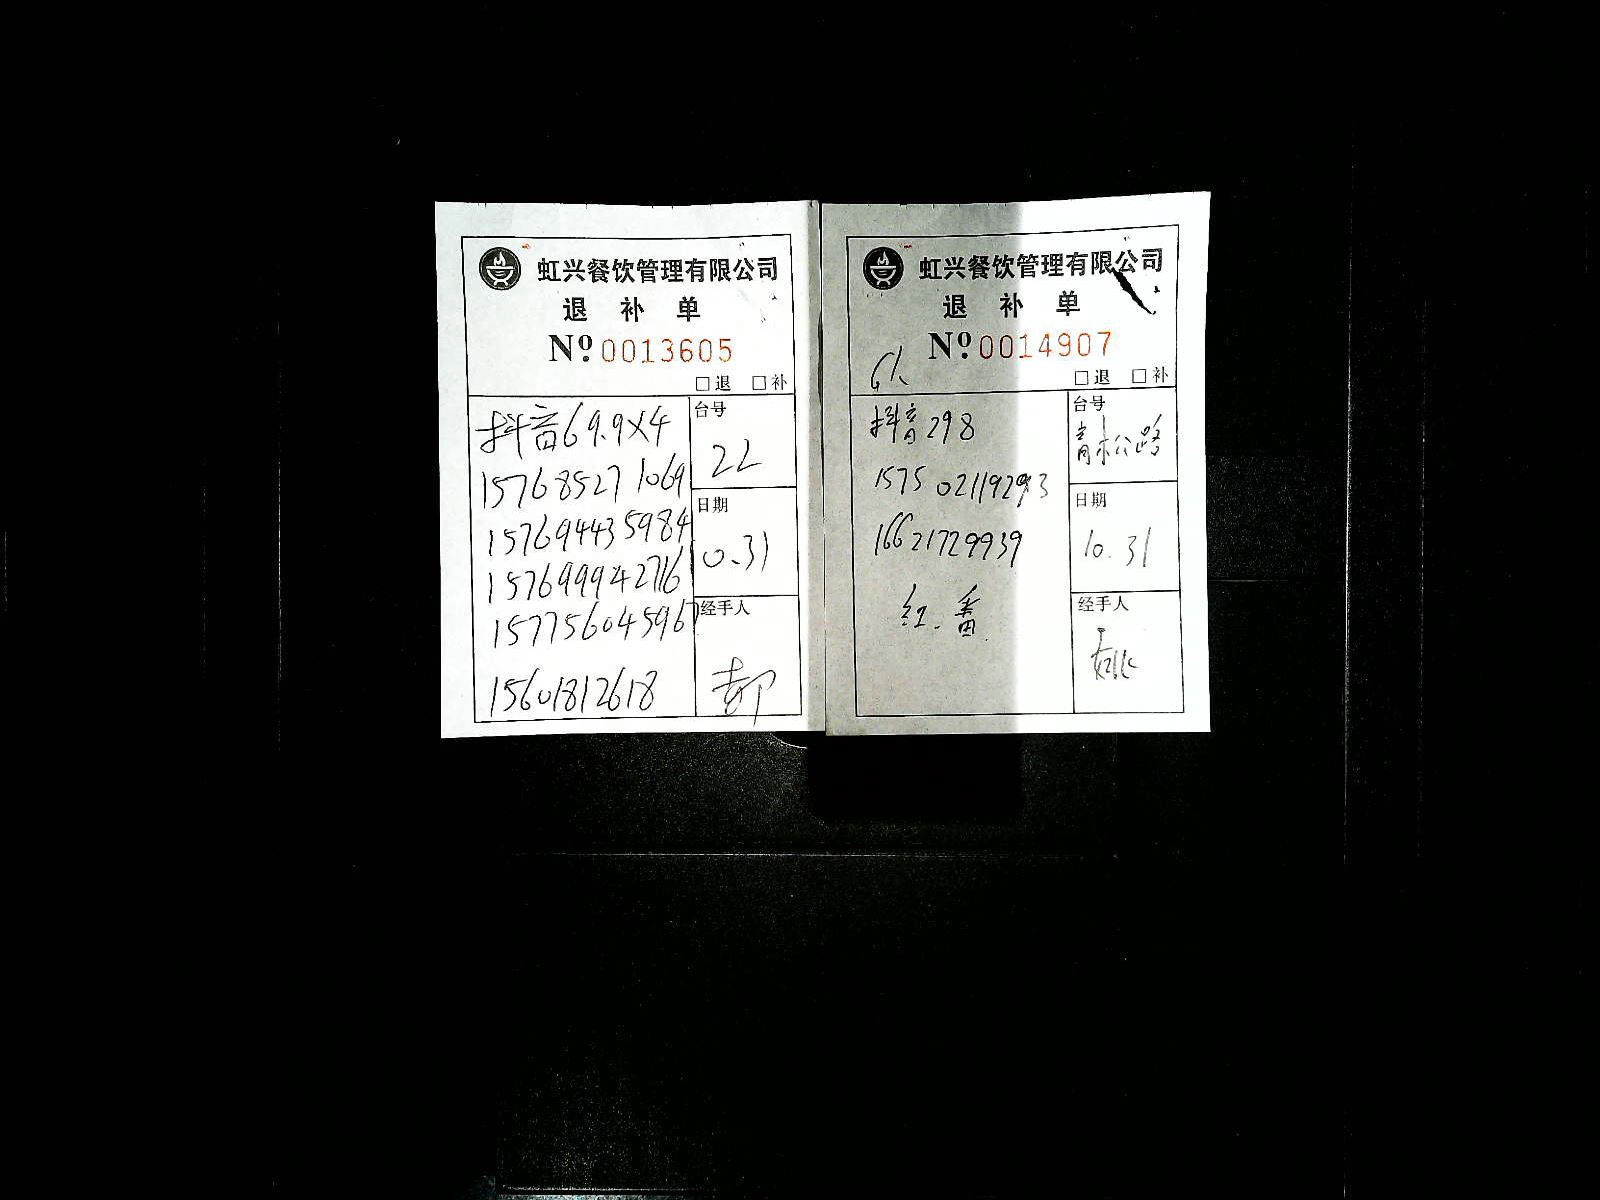 虹兴餐饮管理有限公司
退 补 单
Nº 0013605
□退 □补
抖音69.9X4
15768527 1069
157694435984
157699942716
157756045967
15601812618
台号
22
日期
10.31
经手人
郝
虹兴餐饮管理有限公司
退 补 单
Nº 0014907
□退 □补
6人
抖音298
1575 02119293
16621729939
红.番
台号
青松公路
日期
10.31
经手人
姚